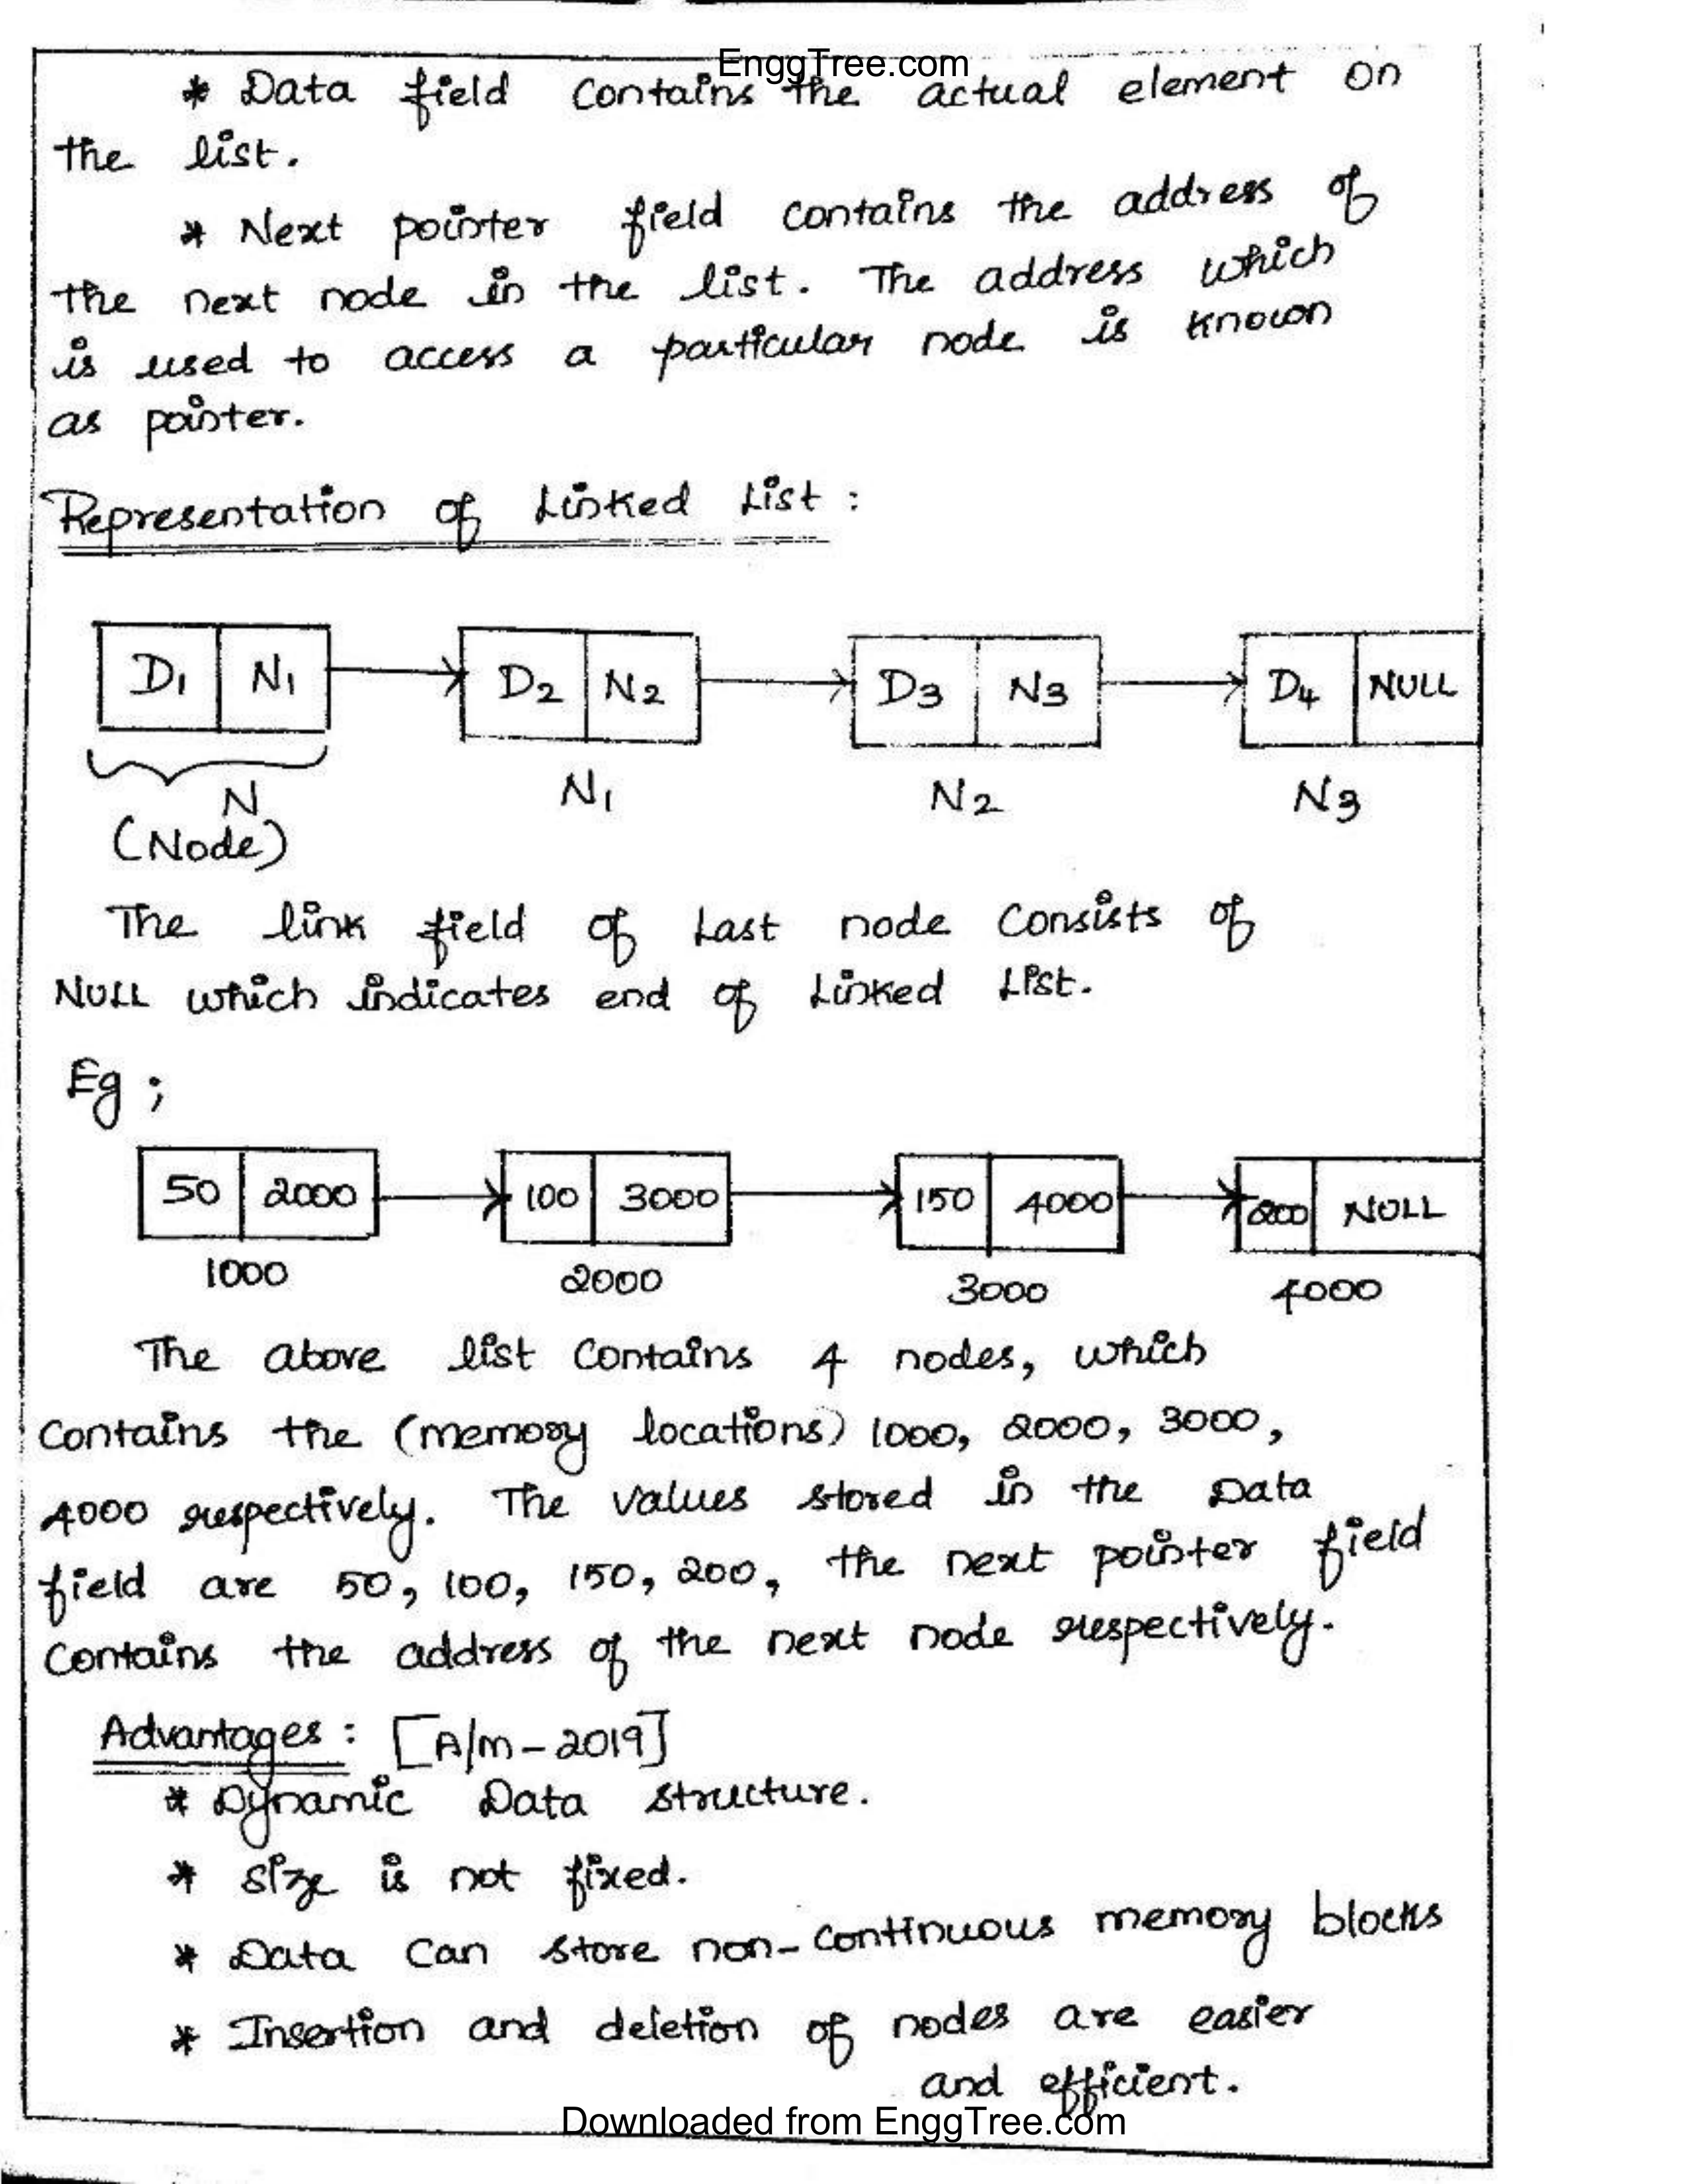 EnggTree.com
* Data field contains the actual element on
the list.
* Next pointer field contains the address of
the next node in the list. The address which
is used to access a particular node is known
as pointer.
Representation of Linked List :
D1 N1 D2 N2 D3 N3 D4 NULL
N N1 N2 N3
(Node)
The link field of Last node consists of
NULL which indicates end of Linked List.
Eg ;
50 2000 100 3000 150 4000 200 NULL
1000 2000 3000 4000
The above list contains 4 nodes, which
contains the (memory locations) 1000, 2000, 3000,
4000 respectively. The values stored in the Data
field are 50, 100, 150, 200, the next pointer field
contains the address of the next node respectively.
Advantages : [A/M-2019]
* Dynamic Data structure.
* Size is not fixed.
* Data can store non-continuous memory blocks
* Insertion and deletion of nodes are easier
and efficient.
Downloaded from EnggTree.com